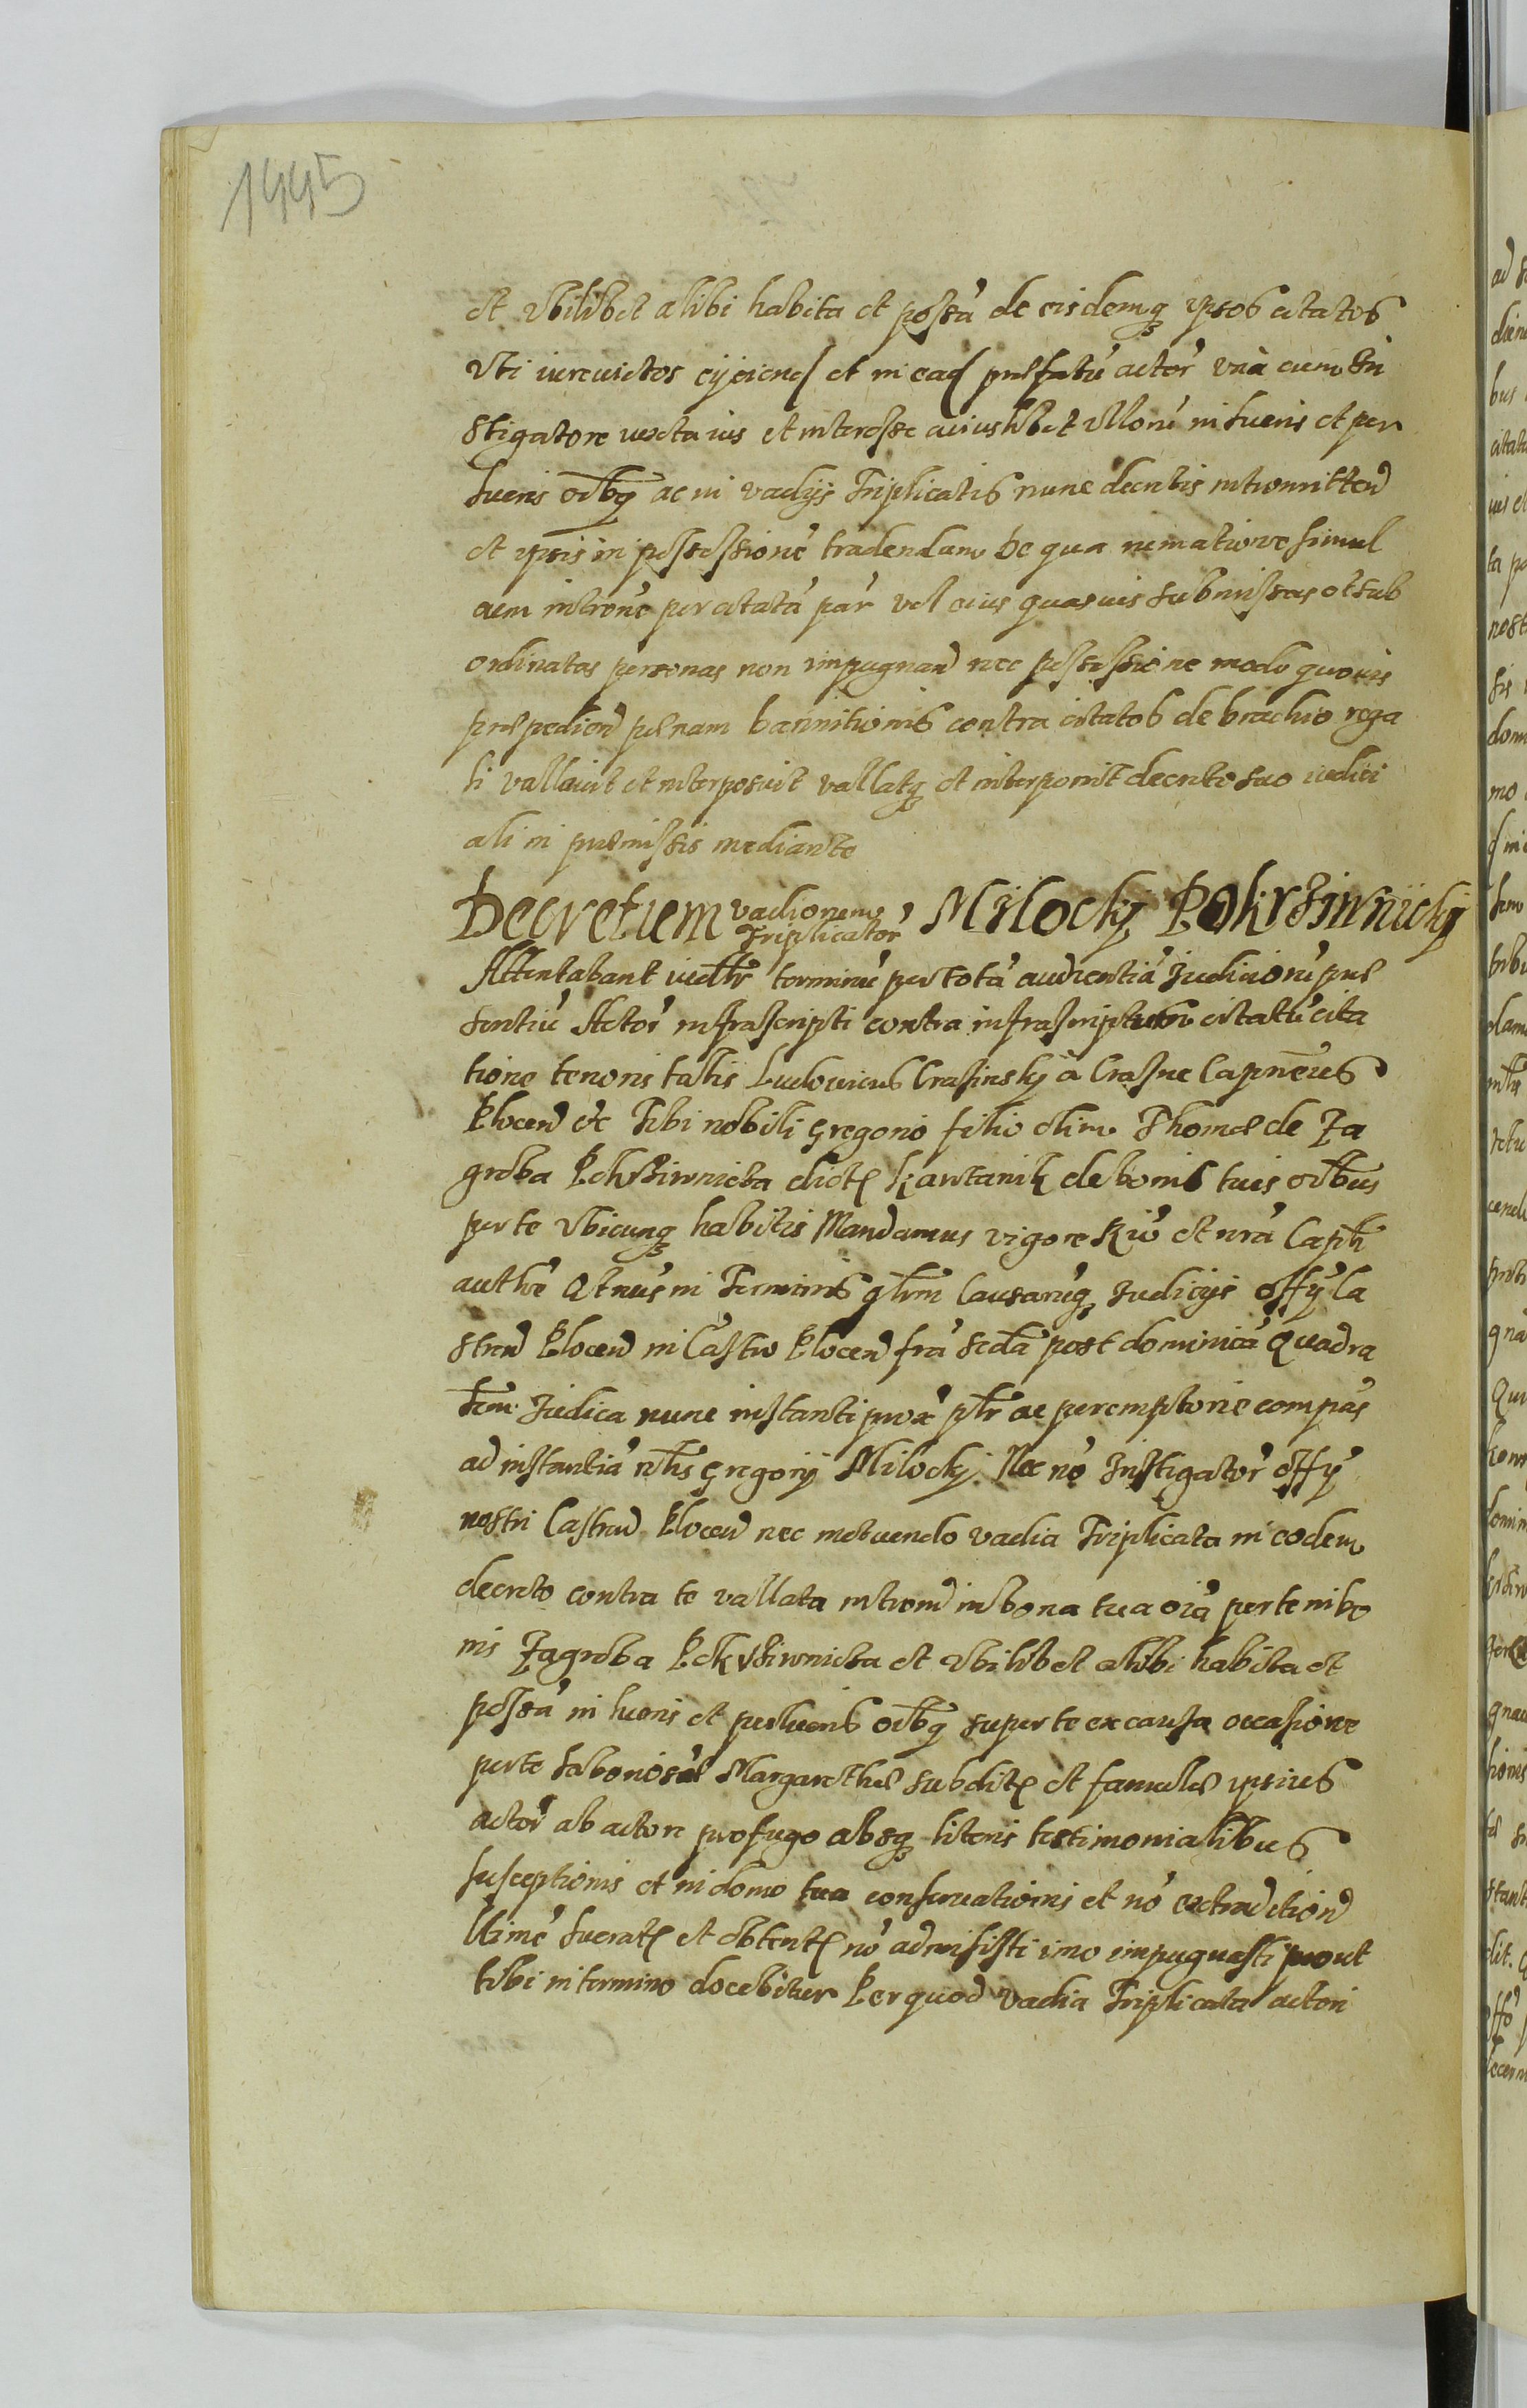 1445
et vbilibet alibi habita et possa de eisdemq ipsos citatos
vti iurevictos eijciend et in ead præfatu actor vna cum in
stigatore iuxta ius et interesse cuiuslibet illoru in lucris et per
lucris oibq ac in vadijs Triplicatis nunc decretis intromittend
et ipsis in possessione tradendam De qua simul
cum introne per citata par vel eius quasuis submissas et sub
ordinatas personas non impugnand nec possessione modo quouis
præpediend pænam bannitionis contra citatos de brachio rega
li vallauit et interposuit vallatq et interponit decreto suo iudici
ali in præmissis mediante
Decretum vadiorum Triplicator Milocky Pokrziwnicky
Attentabant iudlr terminu per tota audientia Judicioru præ
sentiu Actor infrascripti contra infrascriptum citatu cita
tione tenoris talis Ludouicus Crasinsky à Crasne Capneus
Plocen etc Tibi nobili Gregorio filio olim Thomæ de Za
groba Pokrziwnicza dict Kawtanik de bonis tuis oibus
per te vbicunq habitis Mandamus vigore R et nra Capli
authe Qtnus in Terminis qlrm Causaruq Judicijs offy Ca
stren Plocen in Castro Plocen fra scda post dominica Quadra
lem Judica nunc instanti prox plr ac peremptorie compas
ad instantia nlis Gregorij Milocky Nec no Instigator offy
nostri Castren Plocen nec metuendo vadia Triplicata in eodem
decreto contra te vallata introm in bona tua oia per te in bo
nis Zagroba Pokrziwnicza et vbilibet alibi habita et
possa in lucris et perlucris oibq super te ex causa occasione
per te laboriosæ Margarethæ subdit et famulæ ipsius
actor ab actore profuga absq literis testimonialibus
susceptionis et in domo tua conseruationis et no extradition
llime lucrat et obtent no admisisti imo impugnasti prout
tibi in termino docebitur Per quod vadia Triplicata actori